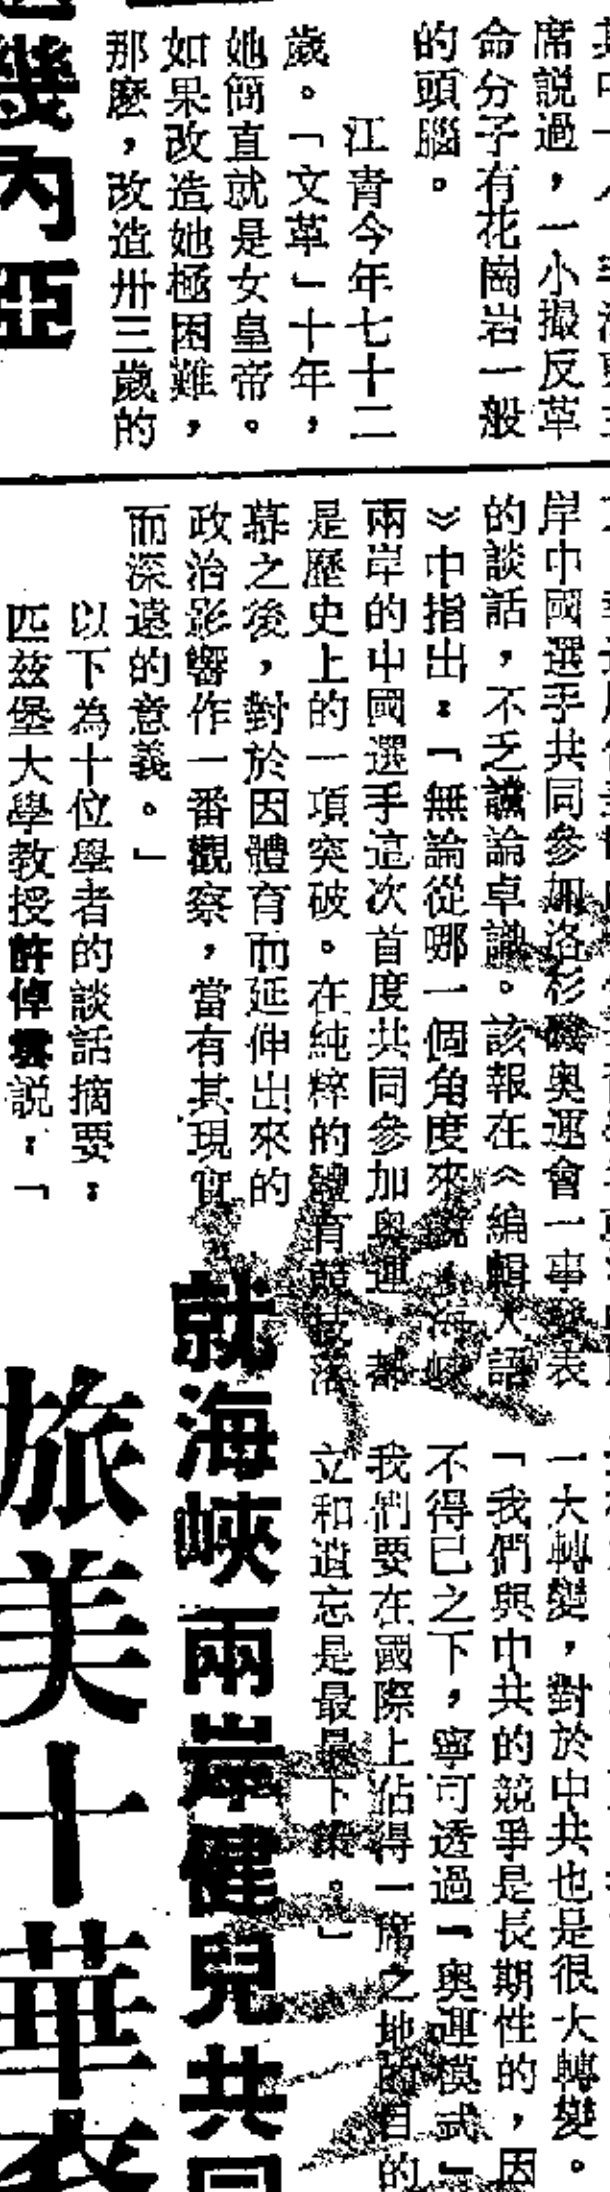 席説過，一小撮反革
命分子有花崗岩一般
的頭腦。
江青今年七十二
歲。「文革」十年，
她簡直就是女皇帝。
如果改造她極困難，
那麽，改造卅三歲的
幾內亞
岸中國選手共同參加洛杉磯奥運會一事發表
的談話，不乏讜論卓識。該報在《編輯人語
》中指出：「無論從哪一個角度來説，海峽
兩岸的中國選手這次首度共同參加奥運，都
是歷史上的一項突破。在純粹的體育競技落
幕之後，對於因體育而延伸出來的
政治影響作一番觀察，當有其現實
而深遠的意義。」
以下為十位學者的談話摘要：
匹茲堡大學教授許倬雲説：「
一大轉變，對於中共也是很大轉變。
「我們與中共的競爭是長期性的，因
不得已之下，寧可透過「奧運模式」
我們要在國際上佔得一席之地的目的
立和遺忘是最最下策。」
就海峽兩岸健兒共同
旅美十華